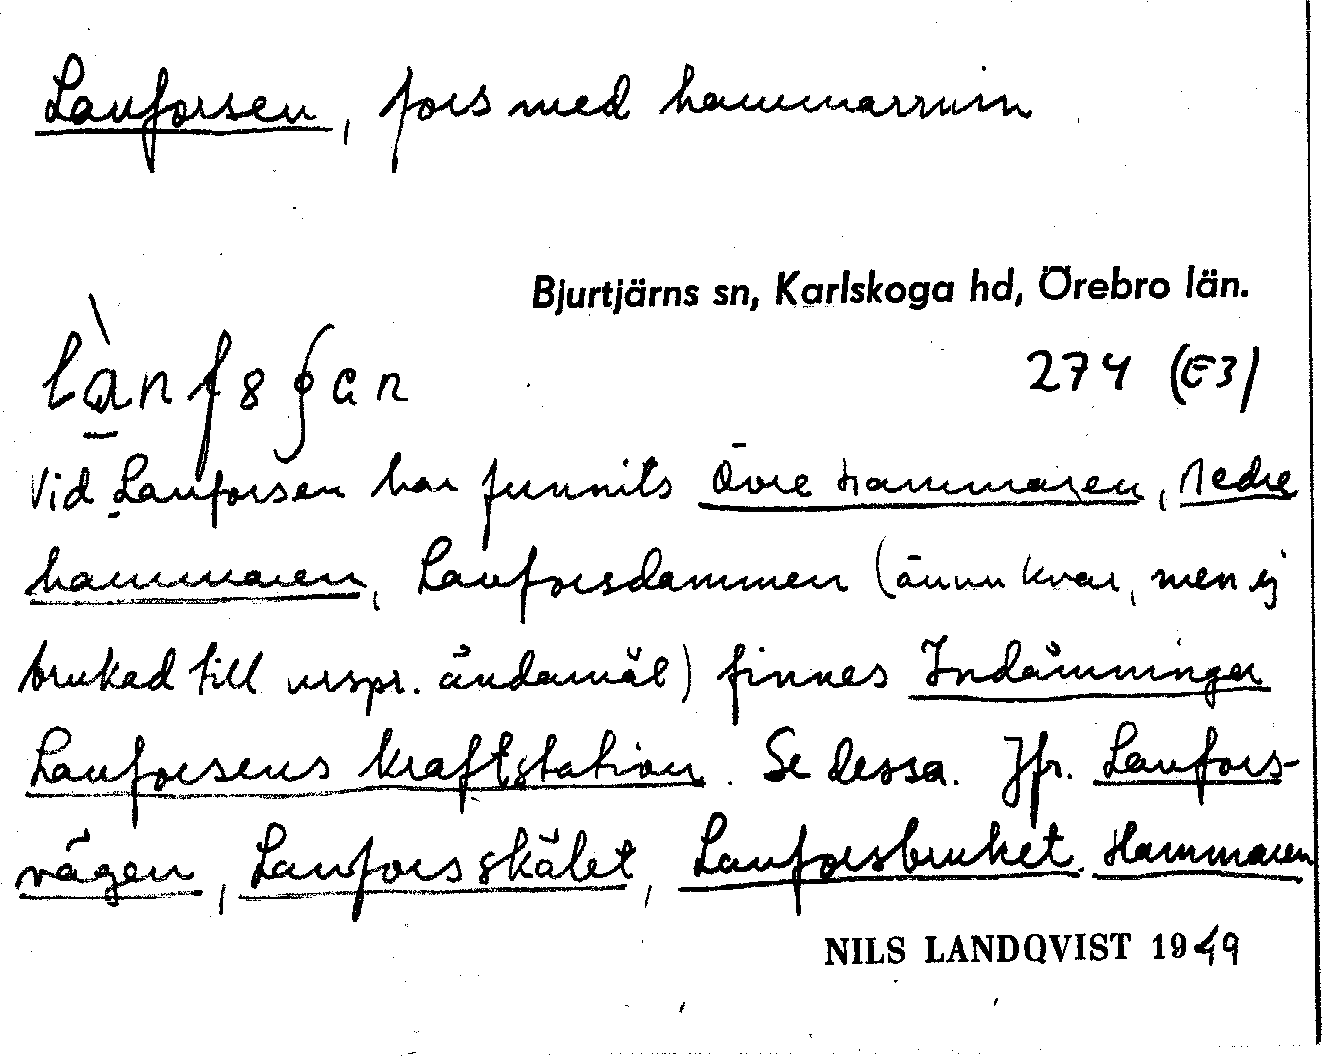 Lanforsen, fors med hammarruin
Bjurtjärns sn, Karlskoga hd, Örebro län.
274 (E3)
Vid Lanforsen har funnits Övre hammaren, Nedre
hammaren, Lanforsdammen (ännu kvar, men ej
brukad till urspr. ändamål) finnes Indämningen
Lanforsens kraftstation. Se dessa. Jfr. Lanfors-
vägen, Lanforsskålet, Lanforsbruket Hammaren
NILS LANDQVIST 1949